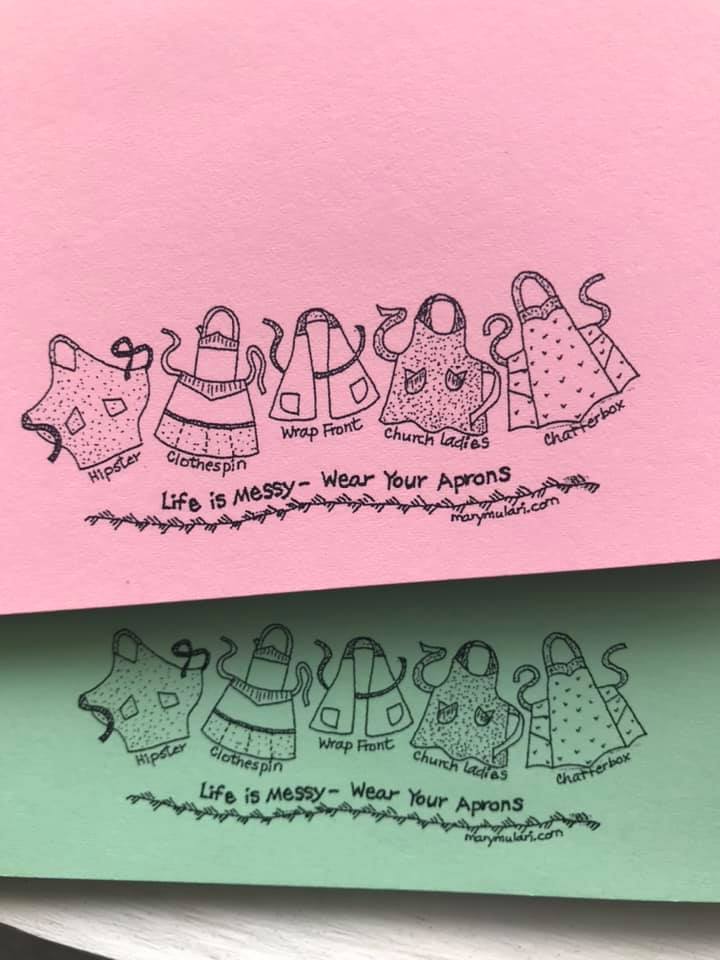 Hipster
Clothespin
Wrap Front
Church Ladies
Chatterbox
Life is Messy - Wear Your Aprons
marymulari.com
Hipster
Clothespin
Wrap Front
Church Ladies
Chatterbox
Life is Messy - Wear Your Aprons
marymulari.com